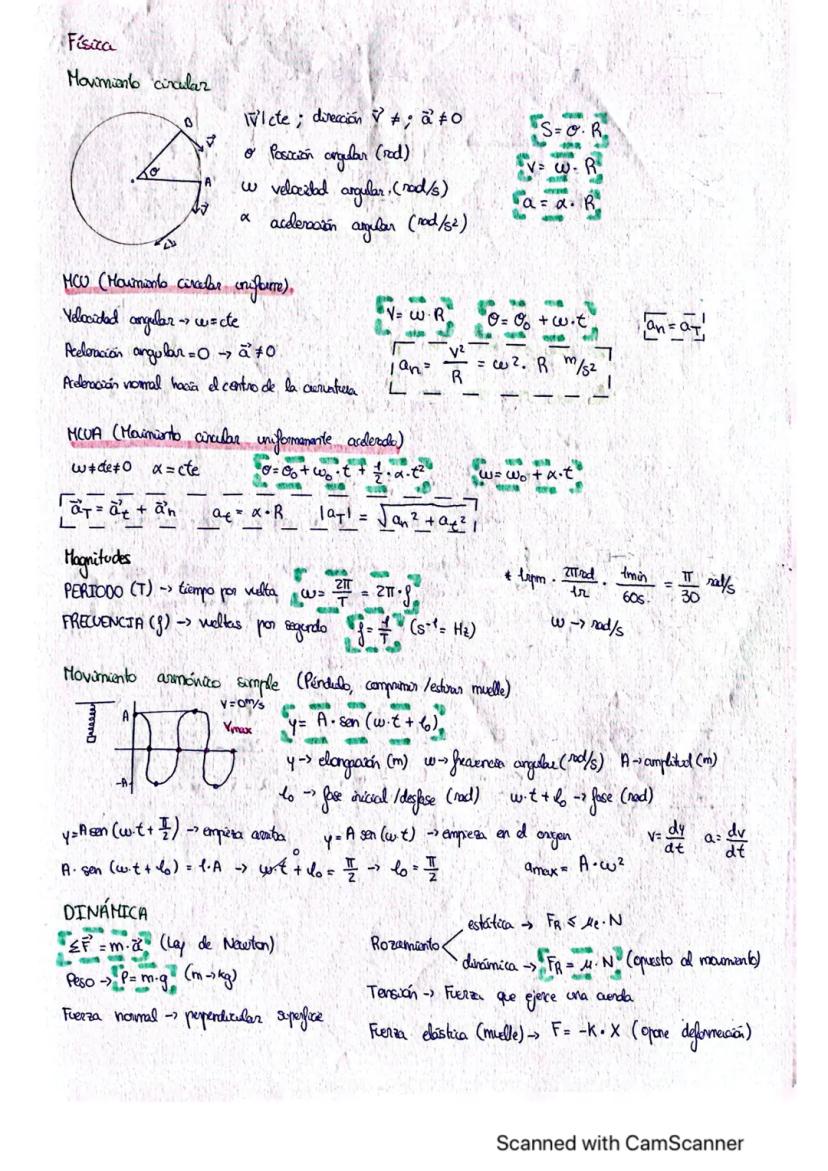 Física
Movimiento circular
|v⃗| cte ; dirección v⃗ ≠ ; a⃗ ≠ 0
S = σ · R
B
v⃗
σ
A
v⃗
σ Posición angular (rad)
v = ω · R
ω velocidad angular (rad/s)
a = α · R
α aceleración angular (rad/s²)
MCU (Movimiento circular uniforme).
Velocidad angular → ω = cte
v = ω · R
σ = σ₀ + ω · t
aₙ = a_T
Aceleración angular = 0 → a⃗ ≠ 0
aₙ = v²/R = ω² · R m/s²
Aceleración normal hacia el centro de la
MCUA (Movimiento circular uniformemente acelerado)
ω ≠ cte ≠ 0 α = cte σ = σ₀ + ω₀ · t + 1/2 · α · t² ω = ω₀ + α · t
a⃗_T = a⃗_t + a⃗ₙ a_t = α · R |a_T| = √(aₙ² + a_t²)
Magnitudes
PERIODO (T) → tiempo por vuelta ω = 2π/T = 2π · f
* 1rpm · 2π rad/1r · 1min/60s. = π/30 rad/s
FRECUENCIA (f) → vueltas por segundo f = 1/T (s⁻¹ = Hz)
ω → rad/s
Movimiento armónico simple (Péndulo, comprimir/estirar muelle)
A
-A
v = 0m/s
Vmax
y = A · sen (ω · t + φ₀)
y → elongación (m) ω → frecuencia angular (rad/s) A → amplitud (m)
φ₀ → fase inicial / desfase (rad) ω · t + φ₀ → fase (rad)
y = A sen (ω · t + π/2) → empieza arriba y = A sen (ω · t) → empieza en el origen v = dy/dt a = dv/dt
A · sen (ω · t + φ₀) = 1 · A → ω · t⁰ + φ₀ = π/2 → φ₀ = π/2 amax = A · ω²
DINÁMICA
ΣF⃗ = m · a⃗ (Ley de Newton)
Peso → P = m · g (m → kg)
Fuerza normal → perpendicular superficie
Rozamiento
estática → F_R ≤ μe · N
dinámica → F_R = μ · N (opuesto al movimiento)
Tensión → Fuerza que ejerce una cuerda
Fuerza elástica (muelle) → F = -K · X (opone deformación)
Scanned with CamScanner